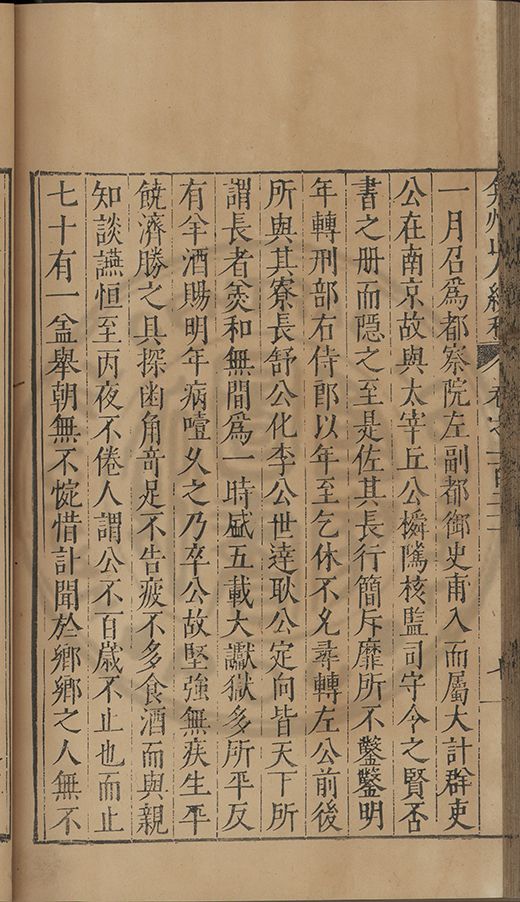 弇州山人續稿 卷之一百三十 七
一月召爲都察院左副都御史甫入而屬大計群吏
公在南京故與太宰丘公橓隲核監司守令之賢否
書之册而隱之至是佐其長行簡斥靡所不鑿鑿明
年轉刑部右侍郎以年至乞休不允尋轉左公前後
所與其寮長舒公化李公世達耿公定向皆天下所
謂長者羙和無間爲一時盛五載大讞獄多所平反
有羊酒賜明年病噎乆之乃卒公故堅強無疾生平
饒濟勝之具探幽角竒足不告疲不多食酒而與親
知談讌恒至丙夜不倦人謂公不百歲不止也而止
七十有一盆舉朝無不惋惜訃聞於鄉鄉之人無不